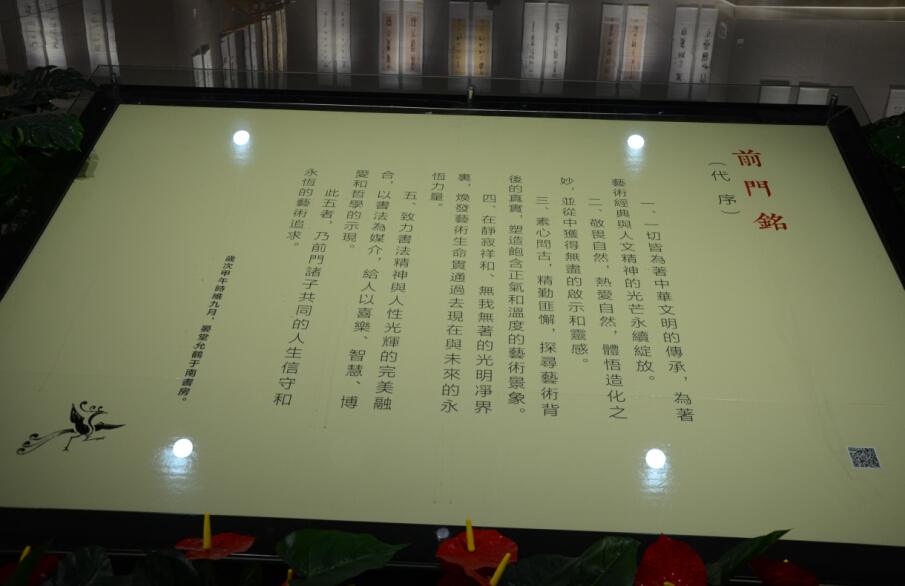 前門銘
（代序）
一、一切皆為著中華文明的傳承，為著
藝術經典與人文精神的光芒永續綻放。
二、敬畏自然，熱愛自然，體悟造化之
妙，並從中獲得無盡的啟示和靈感。
三、素心問古，精勤匪懈，探尋藝術背
後的真實，塑造飽含正氣和溫度的藝術景象。
四、在靜寂祥和、無我無著的光明凈界
裏，煥發藝術生命貫通過去現在與未來的永
恆力量。
五、致力書法精神與人性光輝的完美融
合，以書法為媒介，給人以喜樂、智慧、博
愛和哲學的示現。
此五者，乃前門諸子共同的人生信守和
永恆的藝術追求。
歲次甲午時維九月，晏堂允鶴于南書房。